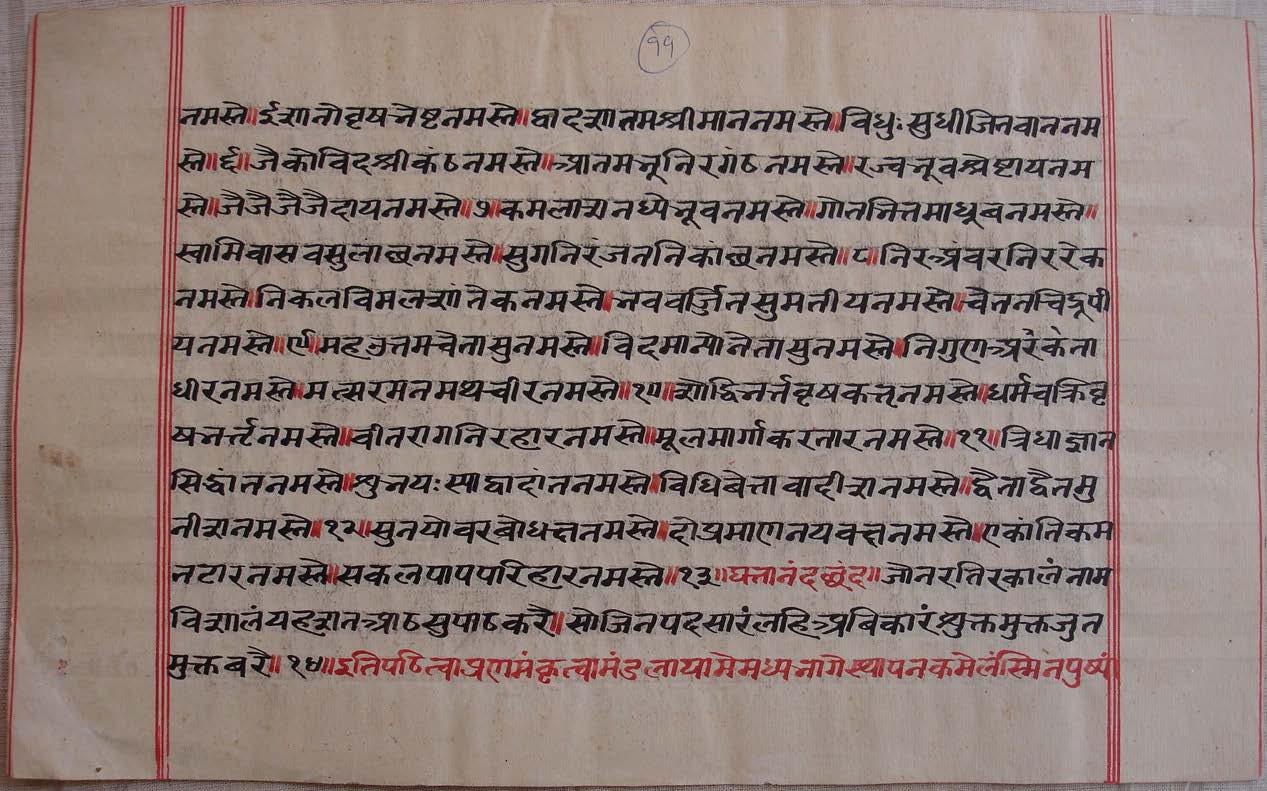 ११
नमस्ते॥ईशानोवृषनेष्टनमस्ते॥द्वादशात्तमश्रीमाननमस्ते॥विधुःसुधीजितवाननम
स्ते॥६॥जैकोविदश्रीकंठनमस्ते॥आतमनूनिरगंठनमस्ते॥रज्वनूवश्रेष्टायनम
स्ते॥जैजैजैजैदायनमस्ते॥७॥कमलाशनध्येनूवनमस्ते॥गोतजितमाधूवनमस्ते॥
स्वामिवासवसुलांछनमस्ते॥सुगनिरंजननिकांछनमस्ते॥८॥निरअंवरनिररेक
नमस्ते॥निकलविमलशांतेकनमस्ते॥नववर्जितसुमतीयनमस्ते॥चेतनचिद्रूपी
यनमस्ते॥९॥महउत्तमचेतासुनमस्ते॥विदमान्योनेतासुनमस्ते॥निगुणअरंकेता
धीरनमस्ते॥मत्सरमनमथचीरनमस्ते॥१०॥शोद्धिनर्त्तवृषकत्तृनमस्ते॥धर्मचक्रिवृ
षनर्त्तृनमस्ते॥वीतरागनिरहारनमस्ते॥मूलमार्गाकरतारनमस्ते॥११॥त्रिधाज्ञान
सिद्धांतनमस्ते॥शुनयःस्याद्वादांतनमस्ते॥विधिवेत्तावादीशनमस्ते॥द्वैताद्वैतमु
नीशनमस्ते॥१२॥सुनयोवरबोधत्तनमस्ते॥दोप्रमाणनयवत्तृनमस्ते॥एकांतिकम
नटारनमस्ते॥सकलपापपरिहारनमस्ते॥१३॥घत्तानंदछंद॥जोनरतिरकालंनाम
विशालंयहशतआठसुपाठकरै॥सोजिनपदसारंलहिअबिकारंशुक्तमुक्तजुत
मुक्तबरै॥१४॥इतिपठित्वाप्रणामंकृत्वामंडलायामेमध्यनागेस्थापनकमेलंस्मिनपुष्पं